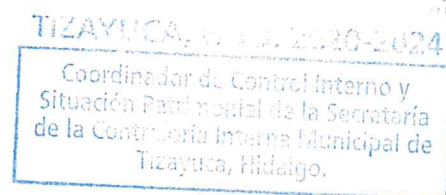 TIZAYUCA, 2020-2024
Coordinador de Control Interno y
Situación Patrimonial de la Secretaría
de la Contraloría Interna Municipal de
Tizayuca, Hidalgo.